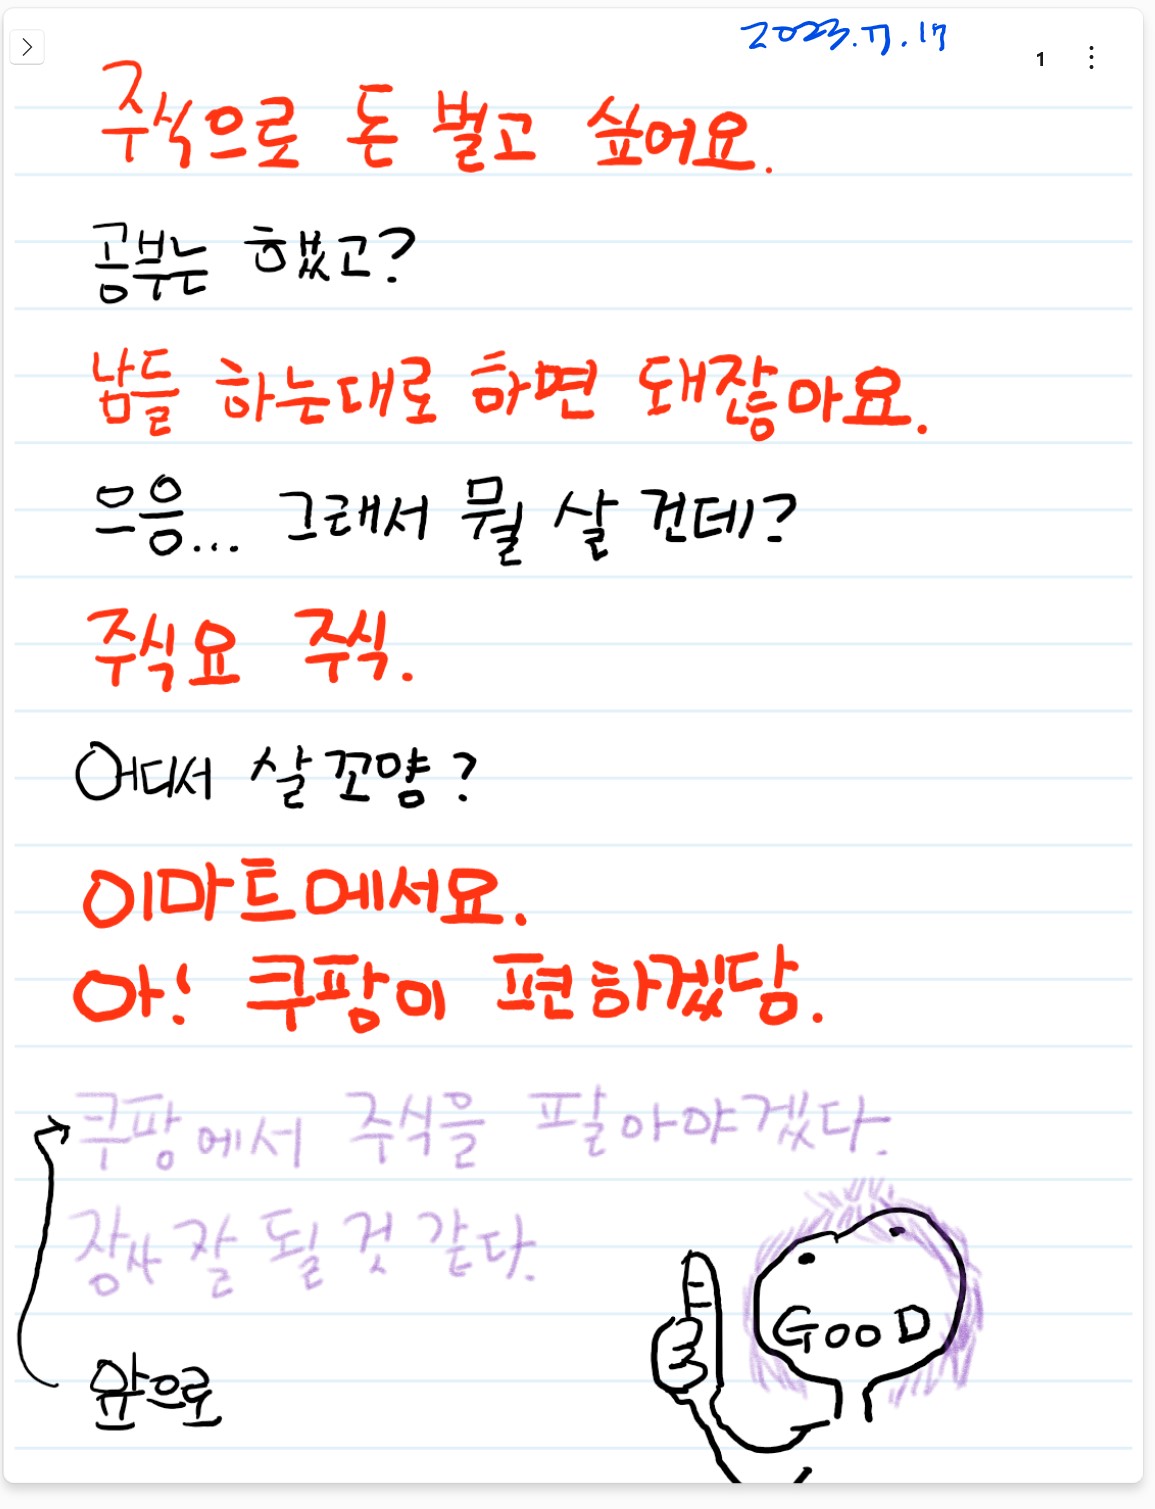 2023.11.17
1
주식으로 돈 벌고 싶어요.
공부는 했고?
남들 하는대로 하면 돼잖아요.
으음... 그래서 뭘 살 건데?
주식요 주식.
어디서 살꼬얌?
이마트에서요.
아! 쿠팡이 편하겠담.
쿠팡에서 주식을 팔아야겠다.
장사 잘 될 것 같다.
GOOD
앞으로